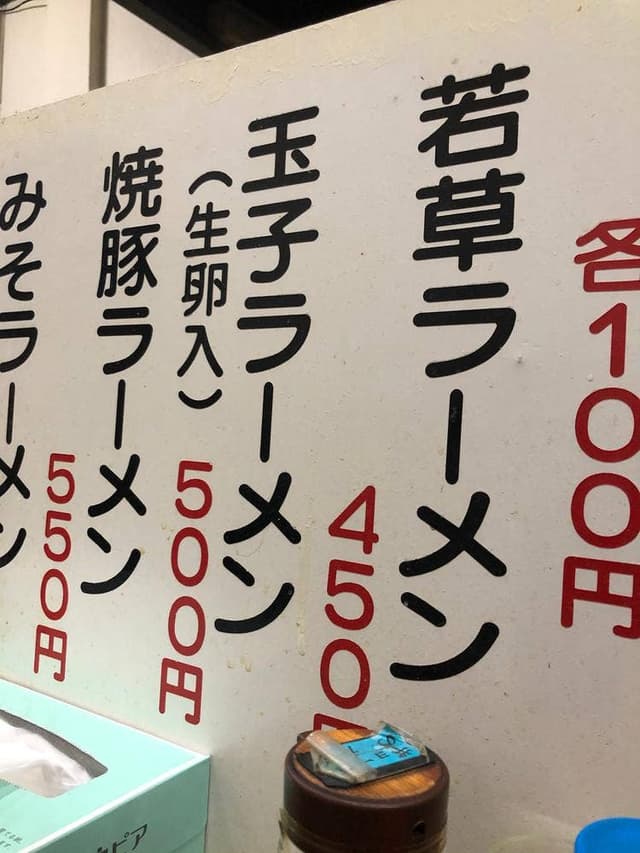 各100円
若草ラーメン
450円
玉子ラーメン
（生卵入）
500円
焼豚ラーメン
550円
みそラーメン